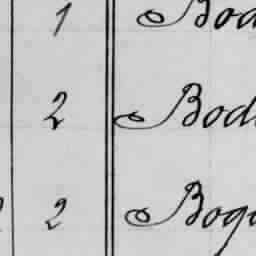 1 Bod
2 Bod
2 Bog